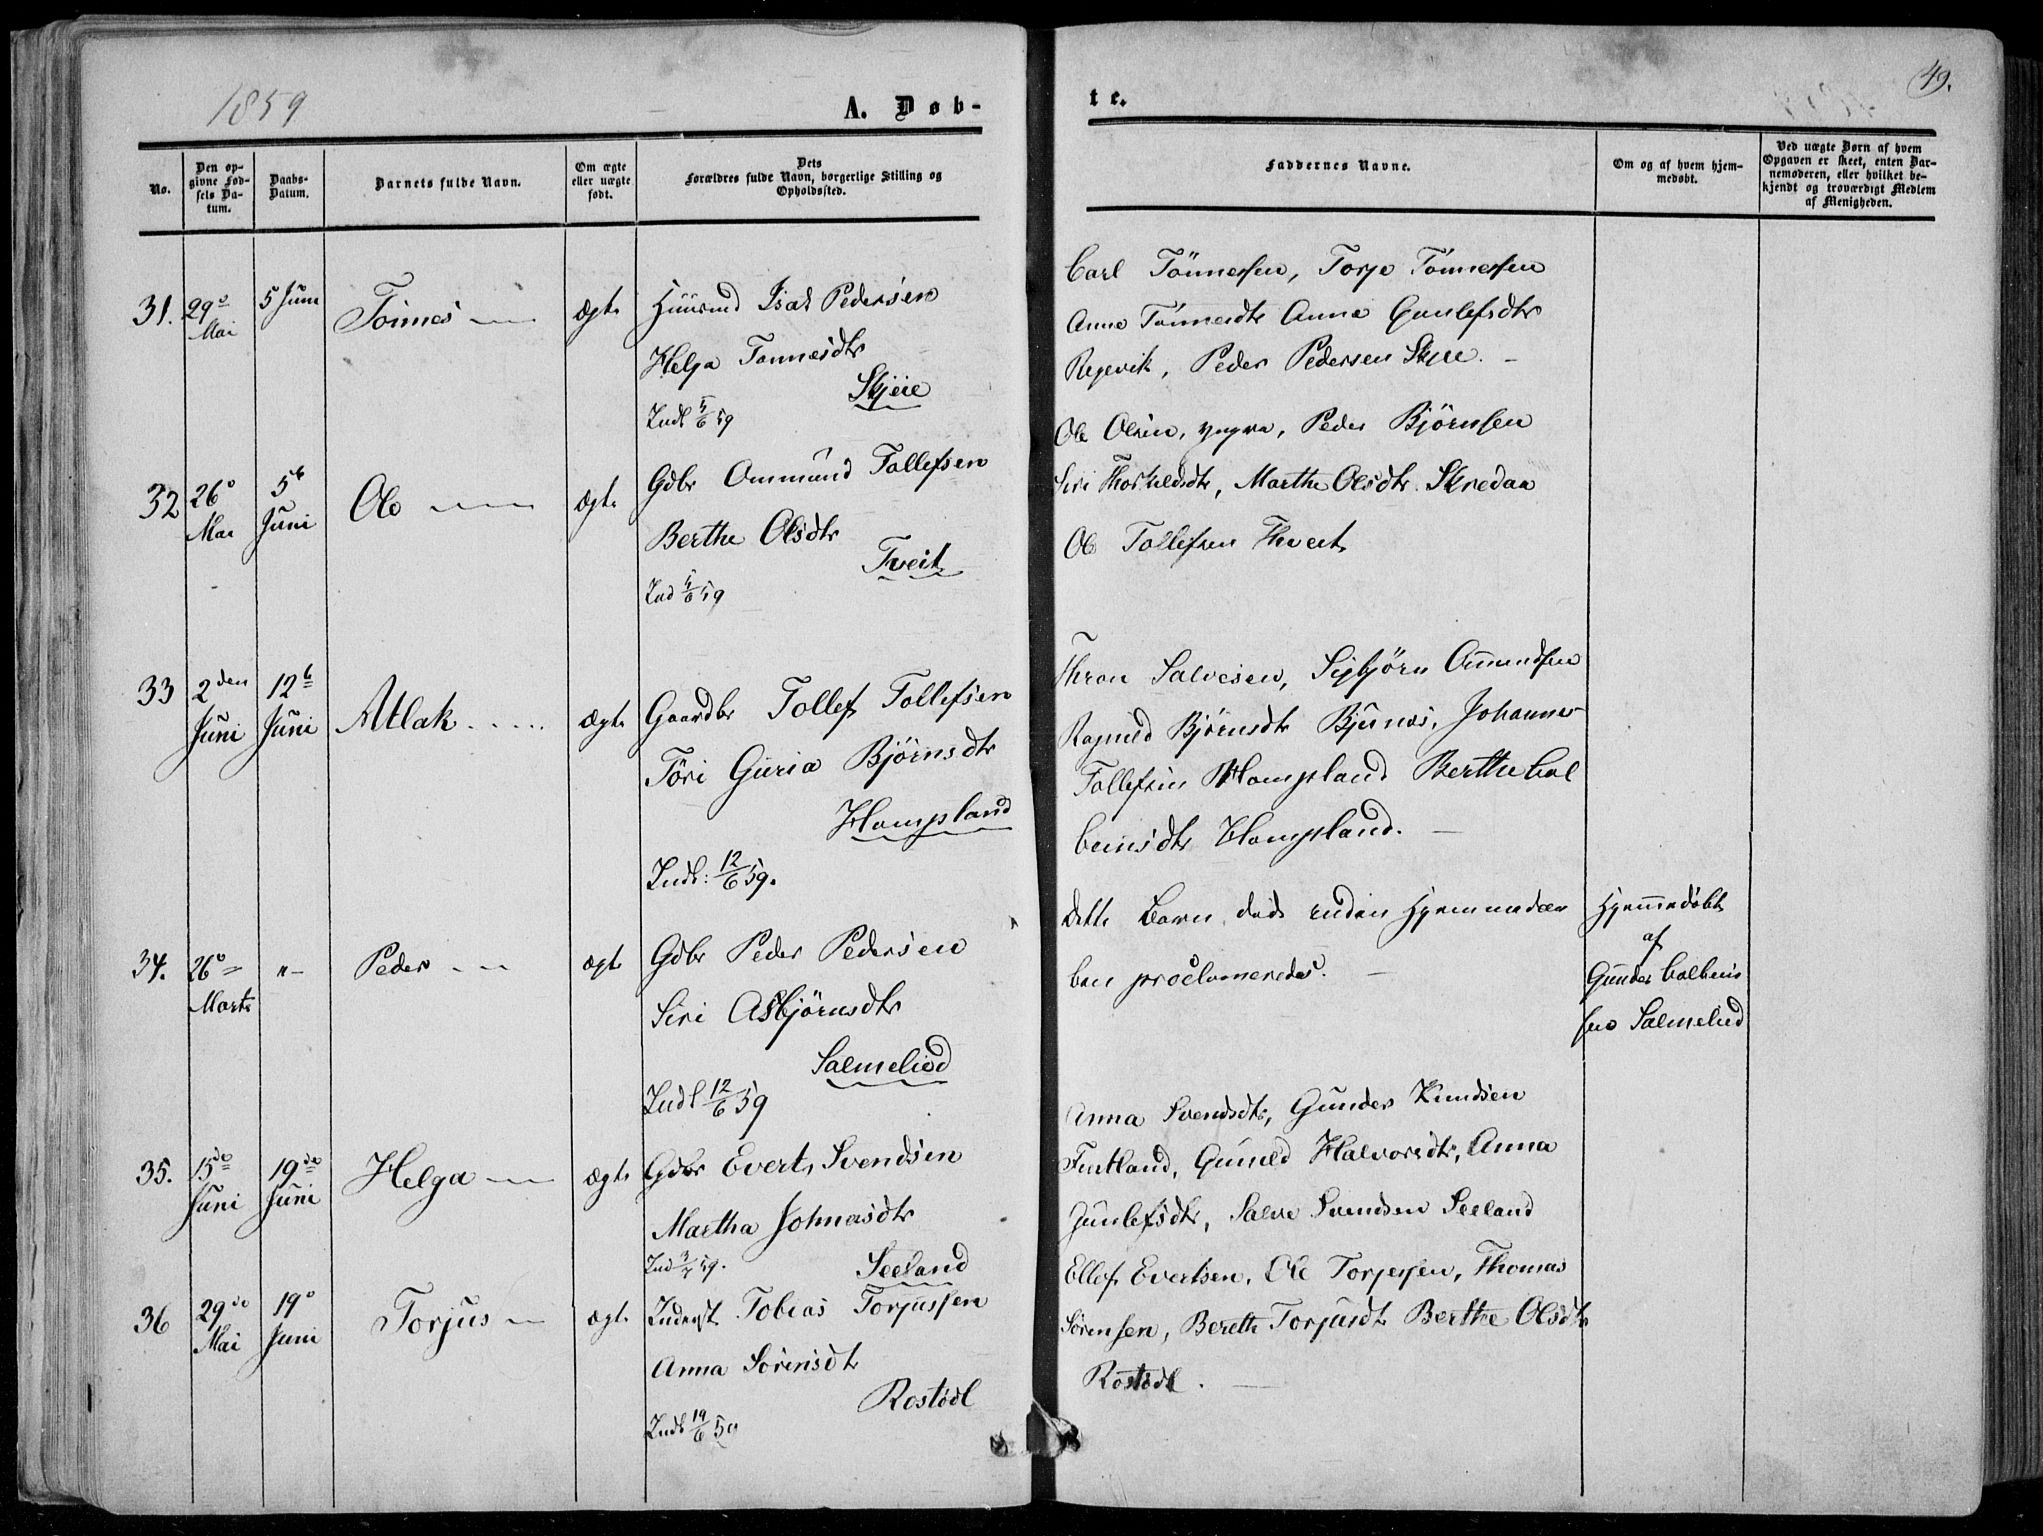 1859
A. Døb-
te.
49.
No.
Den op-
givne Fød-
sels Da-
tum.
Daabs-
Datum.
Barnets fulde Navn.
Om ægte
eller uægte
født.
Dets
Forældres fulde Navn, borgerlige Stilling og
Opholdssted.
Faddernes Navne.
Om og af hvem hjem-
medøbt.
Ved uægte Børn af hvem
Opgaven er skeet, enten Bar-
nemoderen, eller hvilket be-
kjendt og troværdigt Medlem
af Menigheden.
31.
29de
Mai
5 Juni
Tönnes
ægte
Huusmd Isak Pedersen
Helga Tønnesdtr
Skjeie
Indl 5/6 59
Carl Tönnessen, Torje Tönnessen
Anne Tönnesdtr Anna Gunlefsdtr
Regevik, Peder Pedersen Skjee.
32
26de
Mai
5te
Juni
Ole
ægte
Gdbr Ommund Tollefsen
Berthe Olsdtr
Tveit
Ind 5/6 59
Ole Olsen, yngre, Peder Bjørnsen
Siri Thorkildsdtr, Marthe Olsdtr Skredaa
Ole Tollefsen Thveit
33
2den
Juni
12te
Juni
Atlak
ægte
Gaardbr Tollef Tollefsen
Töri Guria Bjørnsdtr
Hompland
Indl: 12/6 59.
Thron Salvesen, Sigbjörn Omundsen
Ragnild Bjørnsdtr Bjunes, Johannes
Tollefsen Hompland Berthe Col
beinsdtr Hompland.
34.
26de
Marts
"
Peder
ægte
Gdbr Peder Pedersen
Siri Asbjörnsdtr
Salmeliod
Indl 12/6 59
Dette Barn døde inden Hjemmedaa
ben proclameredes.
Hjemmedøbt
af
Gunder Colbeins
sen Salmelied
35.
15de
Juni
19de
Juni
Helga
ægte
Gdbr Evert Svendsen
Martha Johnasdtr
Seeland
Ind 3/7 59.
Anna Svendsdtr, Gunder Knudsen
Fintland, Gunild Halvorsdtr, Anna
Gunlefsdtr, Salve Svendsen Seeland
36
29de
Mai
19de
Juni
Torjus
ægte
Inderst Tobias Torjussen
Anna Sörensdtr
Rostödl
Indl 19/6 59
Ellef Evertsen, Ole Torjessen, Thomas
Sörensen, Berethe Torjusdtr Berthe Olsdtr
Rostödl.